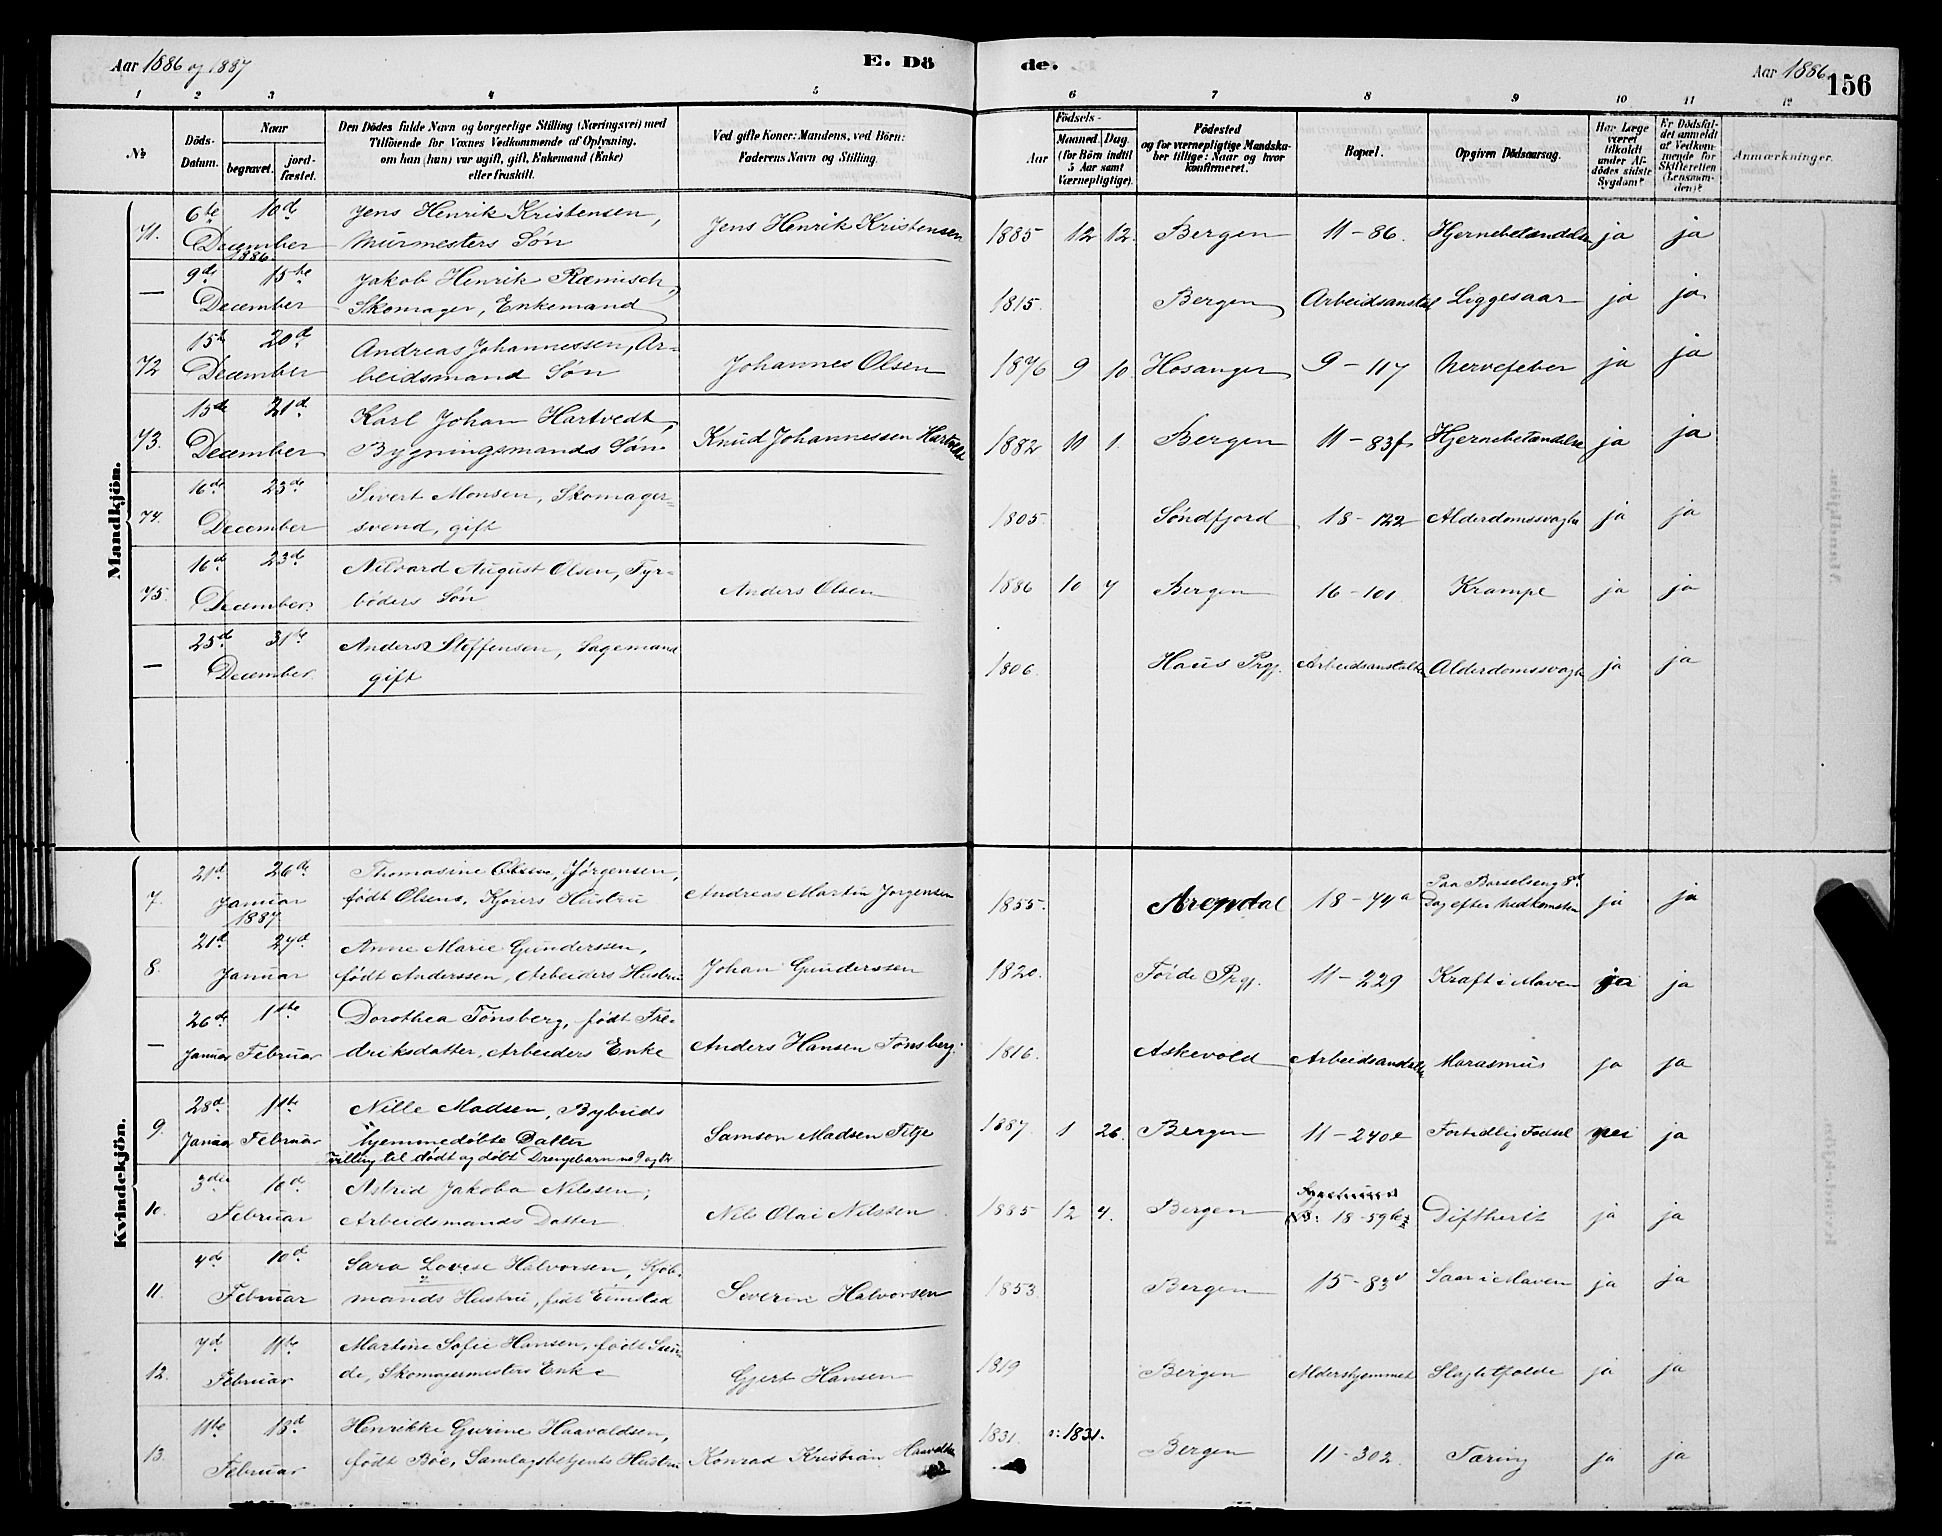 Aar 1886 og 1887
E. Dö
de.
Aar 1886
156
1 2 3 4 5 6 7 8 9 10 11 12
№
Döds-Datum.
Naar begravet. jordfæstet.
Den Dödes fulde Navn og borgerlige Stilling (Næringsvei) med
Tilföiende for Voxnes Vedkommende af Oplysning,
om han (hun) var ugift, gift, Enkemand (Enke)
eller fraskilt.
Ved gifte Koner: Mandens, ved Börn:
Faderens Navn og Stilling.
Födsels-
Aar Maaned. Dag.
(for Börn indtil
5 Aar samt
Værnepligtige).
Födested
og for værnepligtige Mandska-
ber tillige: Naar og hvor
konfirmeret.
Bopæl.
Opgiven Dödsaarsag.
Har Læge
været
tilkaldt
under Af-
dödes sidste
Sygdom?
Er Dödsfal-
det anmeldt
af Vedkom-
mende for
Skifteretten
(Lensman-
den)?
Anmærkninger.
Mandkjön.
71. 6te 10de Jens Henrik Kristensen, Jens Henrik Kristensen 1885 12 12. Bergen 11-86. Hjernebetændelse ja ja
December Murmesters Søn
1886
— 9de 15te Jakob Henrik Ræmisch, 1815. Bergen Arbeidsanstal Liggesaar ja ja
December Skomager, Enkemand
72 15de 20de Andreas Johannessen, Ar- Johannes Olsen 1876 9 10. Hosanger 9-117 Nervefeber ja ja
December beidsmand Søn
73. 15de 21de Karl Johan Hartvedt, Knud Johannessen Hartvedt 1882 11 1. Bergen 11-83f Hjernebetændelse ja ja
December Bygningsmands Søn
74. 16de 23de Sivert Monsen, Skomager- 1805. Søndfjord 18-122 Alderdomssvaghed ja ja
December svend, gift
75. 16de 23de August Olsen, Fyr- Anders Olsen 1886 10 7 Bergen 16-101 Krampe ja ja
December bøders Søn
— 25de 31te Anders Steffensen, Sagemand 1806. Haus Prgj. Arbeidsanstalten Alderdomssvaghed ja ja
December gift
Kvindekjön.
7. 21de 26de Thomasine Olsen, Jørgensen, Andreas Martin Jørgensen 1855. Arendal 18-74a Paa Barselseng 8de ja ja
Januar født Olsens, Kjørers Hustru Dag efter Nedkomsten
1887
8. 21de 27de Anne Marie Gunderssen, Johan Gunderssen 1820. Førde Prgj. 11-229 Kræft i Maven ja ja
Januar født Anderssen, Arbeiders Hustru
— 26de 1ste Dorothea Tønsberg, født Fre- Anders Hansen Tønsberg. 1816. Askevold Arbeidsanstalten Marasmus ja ja
Januar Februar driksdatter, Arbeiders Enke
9. 28de 1ste Nille Madsen, Bybuds Samson Madsen 1887. 1 26. Bergen 11-240e Fortidlig Fødsel nei ja
Januar Februar hjemmedøbte Datter
Tvilling til dødt og døbt Drengebarn no 9
10. 3die 10de Astrid Jakoba Nilssen, Nils Olai Nilssen 1885 12 4. Bergen Sygehuset Diftherit ja ja
Februar Arbeidsmands Datter 18-59b
11. 4de 10de Sara Lovise Halvorsen, Kjøb- Severin Halvorsen 1853. Bergen 15-83d Saar i Maven ja ja
Februar mands Hustru, født Eimstad
12. 7de 11te Martine Sofie Hansen, født Sun- Gjert Hansen 1819 Bergen Aldershjemmet Slagtilfælde ja ja
Februar de, Skomagermesters Enke
13. 11te 18de Henrikke Gurine Haavoldsen, Konrad Kristian 1831. o: 1831. Bergen 11-302. Tæring ja ja
Februar født Bøe, Samlagsbetjents Hustru